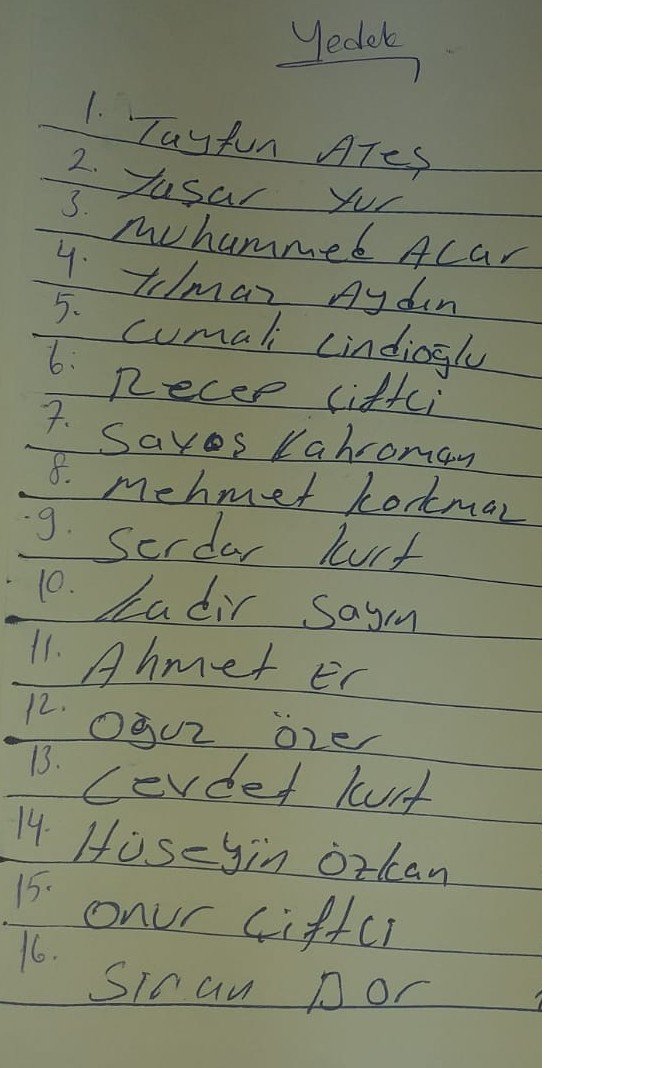 Yedek
1. Tayfun Ateş
2. Yaşar Yur
3. Muhammet Acar
4. Yılmaz Aydın
5. Cumali Cindioğlu
6. Recep Çiftci
7. Savaş Kahraman
8. Mehmet Korkmaz
9. Serdar Kurt
10. Kadir Sayın
11. Ahmet Er
12. Oğuz Özer
13. Cevdet Kurt
14. Hüseyin Özkan
15. Onur Çiftci
16. Sinan